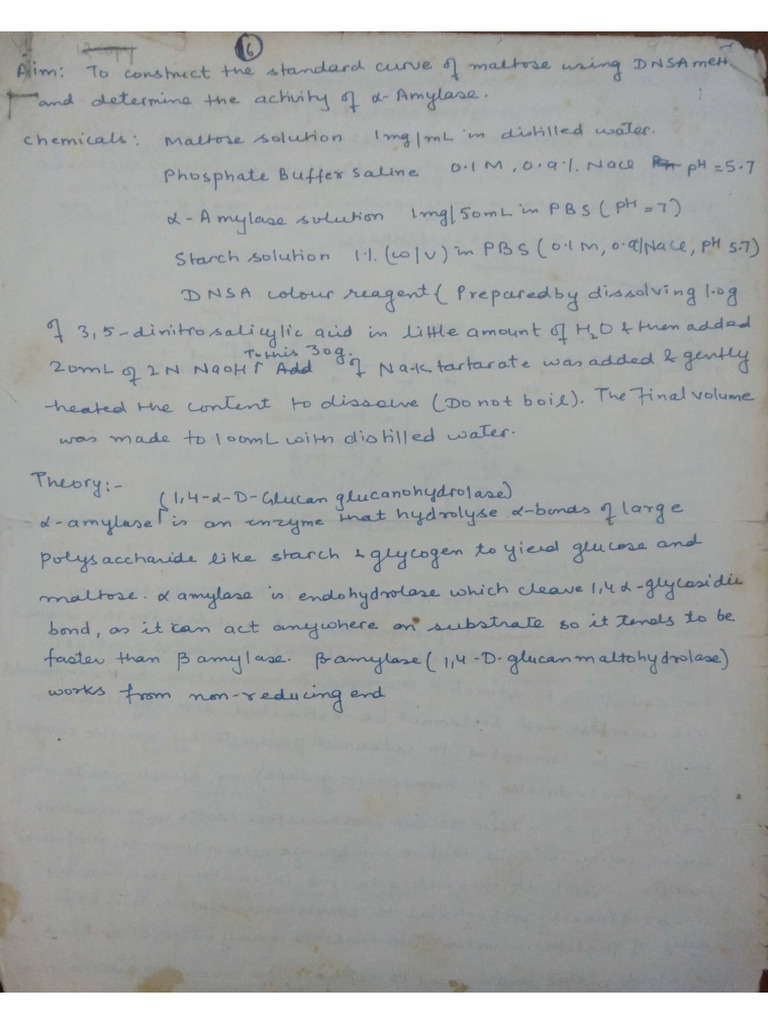 6
Aim: To construct the standard curve of maltose using DNSA meth
and determine the activity of α-Amylase.
Chemicals: Maltose solution 1mg/mL in distilled water.
Phosphate Buffer Saline 0.1M, 0.9% NaCl pH = 5.7
α-Amylase solution 1mg/50mL in PBS (pH = 7)
Starch solution 1% (w/v) in PBS (0.1M, 0.9/NaCl, pH 5.7)
DNSA colour reagent ( Prepared by dissolving 1.0g
of 3,5-dinitrosalicylic acid in little amount of H2O & then added
To this 30g.
20mL of 2N NaOH Add of Na-K tartarate was added & gently
heated the content to dissolve (Do not boil). The Final volume
was made to 100mL with distilled water.
Theory:-
(1,4-α-D-Glucan glucanohydrolase)
α-amylase is an enzyme that hydrolyse α-bonds of large
polysaccharide like starch & glycogen to yield glucose and
maltose. α amylase is endohydrolase which cleave 1,4 α-glycosidic
bond, as it can act anywhere on substrate so it tends to be
faster than β amylase. β-amylase (1,4-D-glucan maltohydrolase)
works from non-reducing end